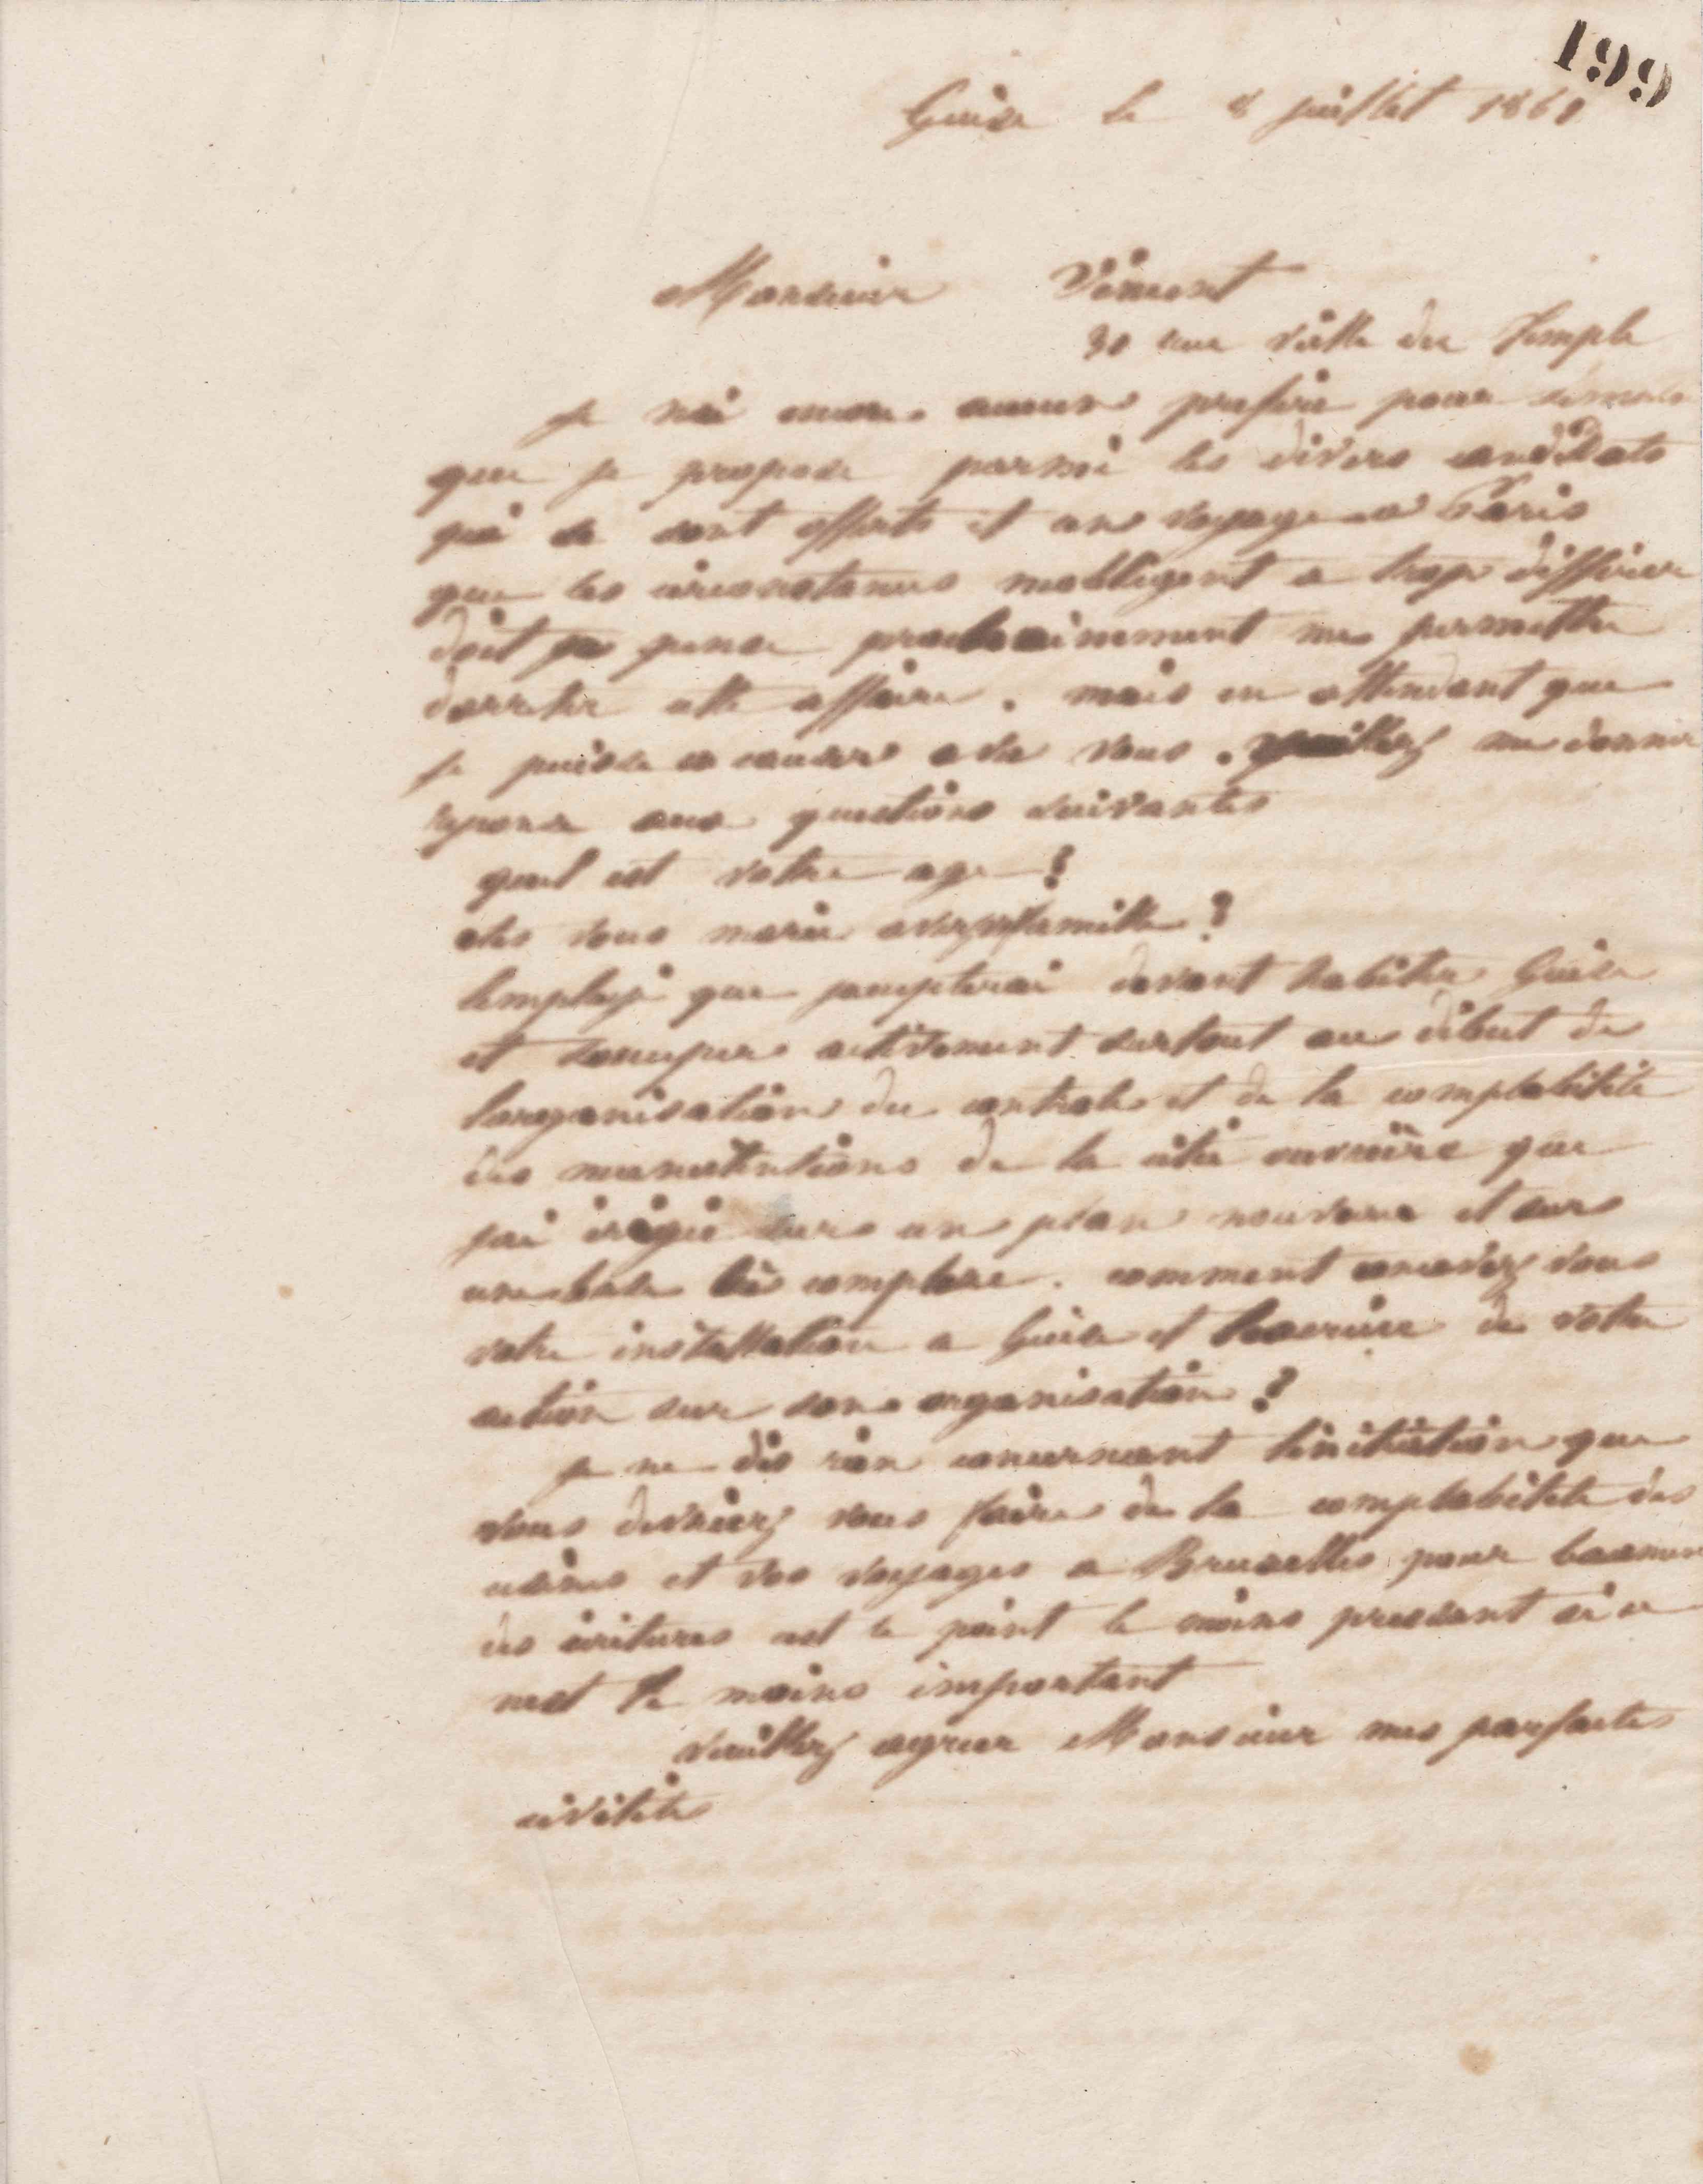 199
Guise le 8 juillet 1861
Monsieur Vimont
30 rue vielle du Temple
je nai encore aucune pour
que je propose parmi les divers candidats
qui se sont offerts et un voyage a Paris
que les circonstances mobligent a trop différer
doit je pense prochainement me permettre
darreter cette affaire. mais en attendant que
je puisse en causer avec vous. veuillez me donner
reponse aux questions suivantes
quel est votre age ?
etes vous marié avez vs famille ?
lemployé que jaccepterai devant habiter Guise
et soccuper activement surtout au début de
lorganisation du controle et de la comptabilité
des manutentions de la cité ouvrière que
jai érigée sur un plan nouveau et sur
une base très complexe. comment concevez vous
votre installation a Guise et lexercice de votre
action sur son organisation ?
je ne dis rien concernant linitiation que
vous devriez vous faire de la comptabilité des
usines et vos voyages a Bruxelles pour lexamen
des écritures cest le point le moins pressant si ce
nest le moins important
veuillez agreer Monsieur mes parfaites
civilités